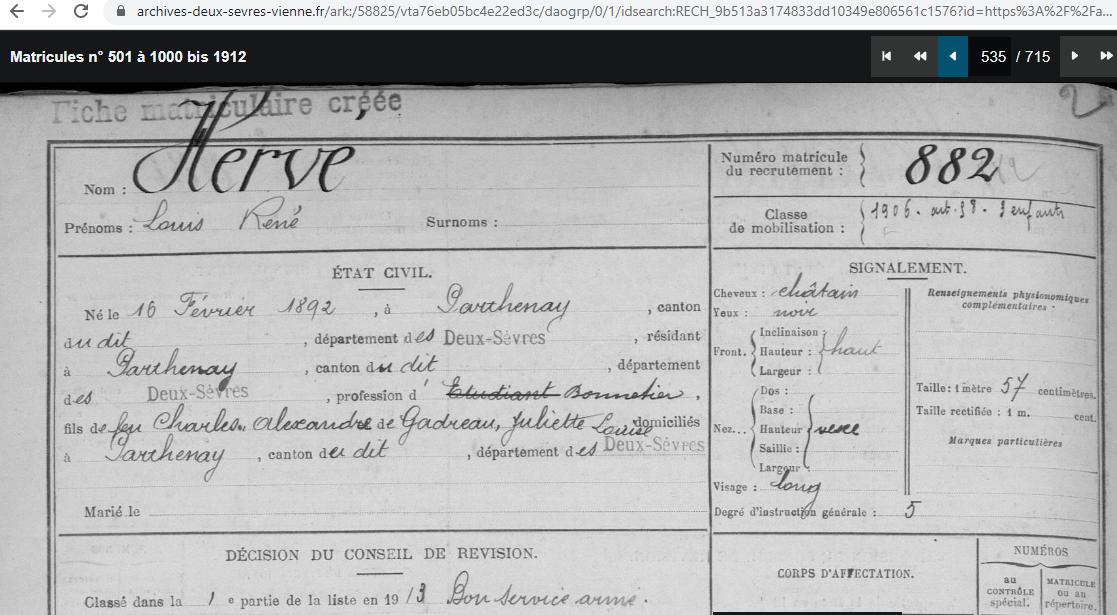 archives-deux-sevres-vienne.fr/ark:/58825/vta76eb05bc4e22ed3c/daogrp/0/1/idsearch:RECH_9b513a3174833dd10349e806561c1576?id=https%3A%2F%2Fa...
Matricules n° 501 à 1000 bis 1912
535 / 715
Fiche matriculaire créée
2
Nom : Hervé
Prénoms : Louis René Surnoms :
Numéro matricule du recrutement : 882
Classe de mobilisation : 1906. art. 58 - 3 enfants
ÉTAT CIVIL.
Né le 16 Février 1892, à Parthenay, canton
du dit, département des Deux-Sèvres, résidant
à Parthenay, canton du dit, département
des Deux-Sèvres, profession d' Etudiant Bonnetier,
fils de feu Charles, Alexandre et de Gadreau, Juliette Louise domiciliés
à Parthenay, canton du dit, département des Deux-Sèvres
Marié le
SIGNALEMENT.
Cheveux : châtain
Yeux : noir
Front. Inclinaison :
Hauteur : haut
Largeur :
Nez... Dos :
Base :
Hauteur
Saillie :
Largeur :
Visage : long
Degré d'instruction générale : 5
Renseignements physionomiques
complémentaires :
Taille : 1 mètre 57 centimètres.
Taille rectifiée : 1 m. cent.
Marques particulières
DÉCISION DU CONSEIL DE REVISION.
Classé dans la 1e partie de la liste en 1913 Bon service armé.
CORPS D'AFFECTATION.
NUMÉROS
au
CONTRÔLE
spécial.
MATRICULE
ou au
répertoire.